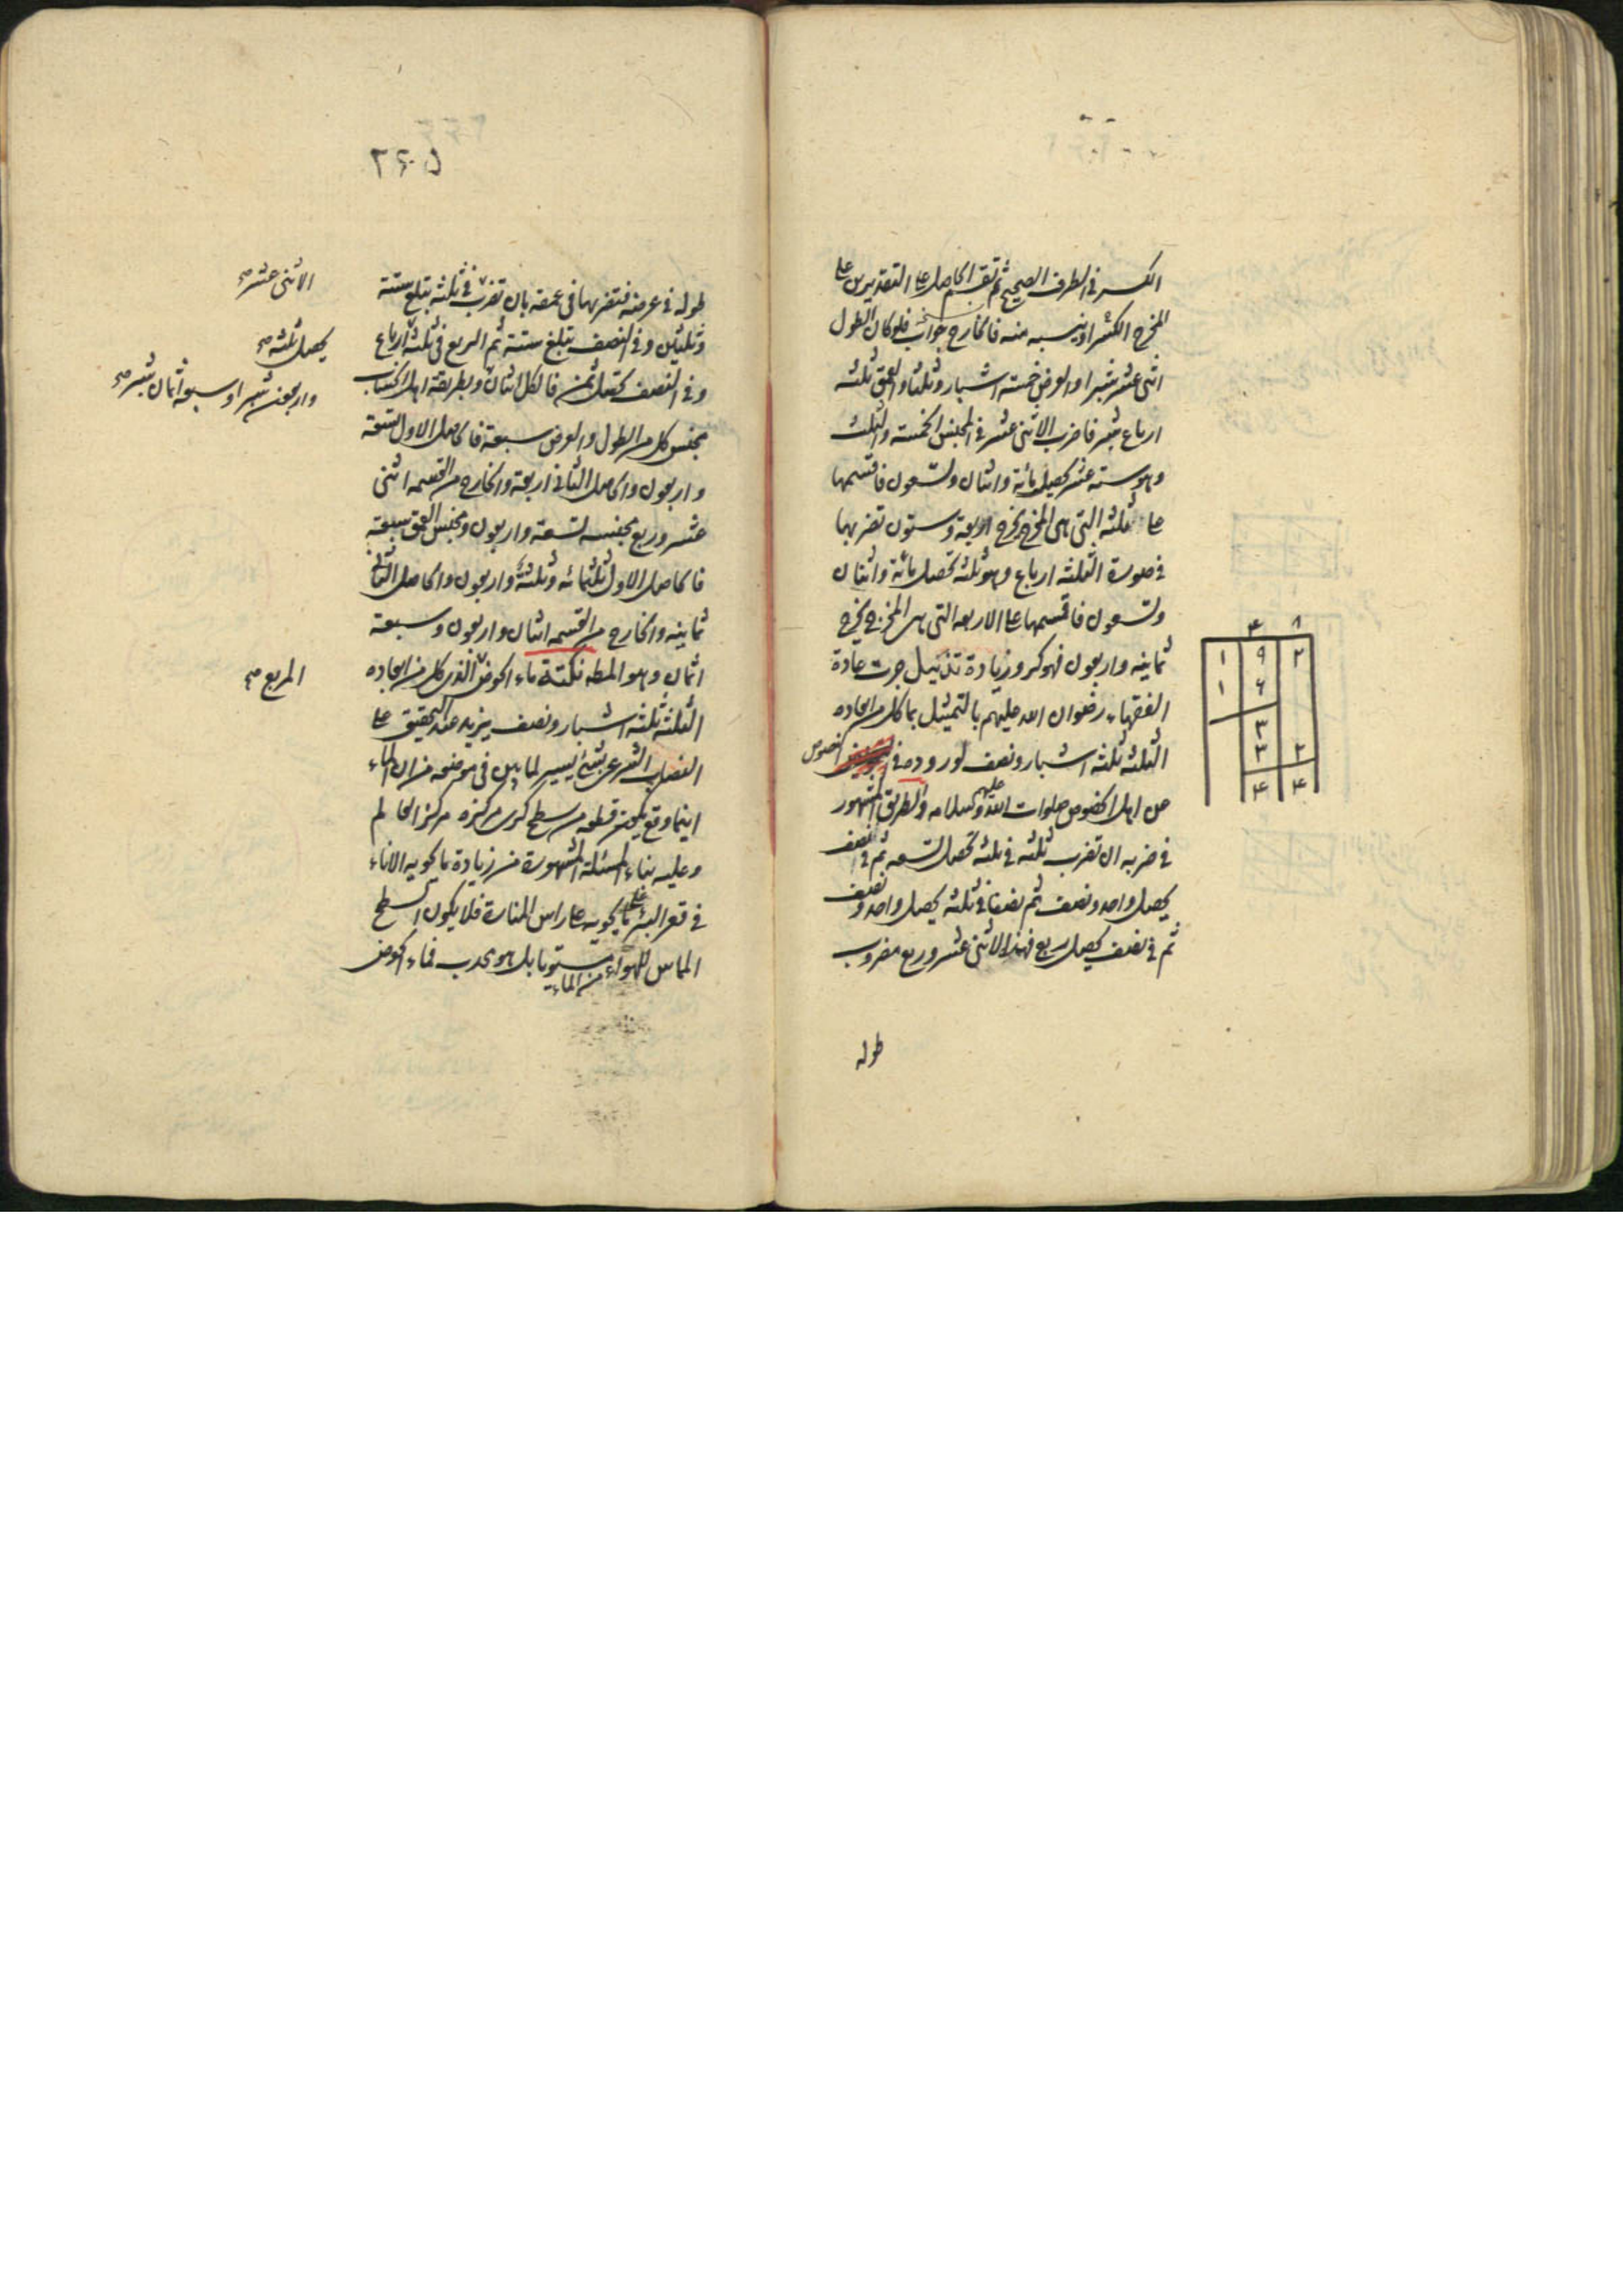 الكسر فى الطرف الصحيح ثم تقسم الحاصل على التقديرين على
المخرج الكسر او ينسبه منه فالخارج جواب فلو كان الطول
اثنى عشر شبرا والعرض خمسة اشبار وثلثا والعمق ثلثه
ارباع شبر فاضرب الاثنى عشر فى المجنس الخمسة والثلث
وهو ستة عشر يحصل مائة واثنان وتسعون فاقسمها
على ثلثه التى هى المخرج يخرج اربعة وستون تضربها
فى صورة الثلثه ارباع وهو ثلثه تحصل مائة واثنان
وتسعون فاقسمها على الاربعه التى هى المخرج يخرج
ثمانيه واربعون فهو كر وزيادة تذييل جرت عادة
الفقهاء رضوان الله عليهم بالتمثيل بما كل من ابعاده
الثلثه ثلثه اشبار ونصف لوروده فى النصوص
عن اهل الخصوص صلوات الله عليهم وسلامه والطريق المشهور
فى ضربه ان تضرب ثلثه فى ثلثه تحصل تسعه ثم فى نصف
يحصل واحد ونصف ثم نصفا فى ثلثه يحصل واحد ونصف
ثم فى نصف يحصل ربع فهذا الاثنى عشر وربع مضروب
طوله
٨ ٤
١ ٩ ٢
١ ٦
٣
٣ ٢
٤ ٤
٢٤٠٥
طوله فى عرضه فتضربها فى عمقه بان تضرب فى ثلثه تبلغ ستة
وثلثين وفى النصف تبلغ ستة ثم الربع فى ثلثه ارباع
وفى النصف يحصل ثمن فالكل اثنان وبطريقة اهل الحساب
مجنس كل من الطول والعرض سبعة فالحاصل الاول تسعة
واربعون والحاصل الثانى اربعة والخارج من القسمه اثنى
عشر وربع مجنسه تسعة واربعون ومجنس العمق سبعة
فالحاصل الاول ثلثمائه وثلثة واربعون والحاصل الثانى
ثمانيه والخارج من القسمه اثنان واربعون وسبعة
اثمان وهو المط نكتة ماء الحوض الذى كل من ابعاده
الثلثة ثلثه اشبار ونصف يزيد عند التحقيق على
النصاب الشرعى بشئ يسير لما بين فى موضعه من ان الماء
اينما وقع يكون قطعه من سطح كرى مركزه مركز العالم
وعليه بناء المسئلة المشهورة من زيادة ما يحويه الاناء
فى قعر البئر على ما يحويه على راس المنارة فلا يكون السطح
المماس للهواء من الماء مستويا بل هو محدب فماء الحوض
الاثنى عشر صح
يحصل ثلثه صح
واربعون شبرا وسبعة اثمان شبر صح
المربع صح